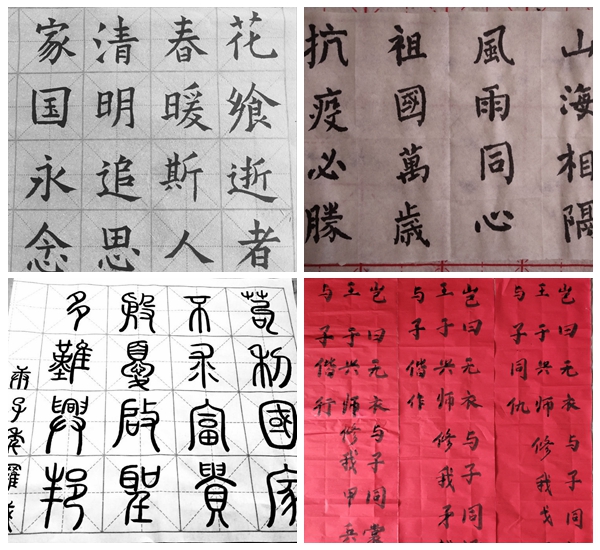 花飨逝者
春暖斯人
清明追思
家国永念
山海相隔
風雨同心
祖國萬歳
抗疫必勝
苟利國家
不求富貴
殷憂啟聖
多難興邦
庚子年羅
岂曰无衣与子同
王于兴师修我戈
与子同仇
岂曰无衣与子同
王于兴师修我矛
与子偕作
岂曰无衣与子同裳
王于兴师修我甲兵
与子偕行